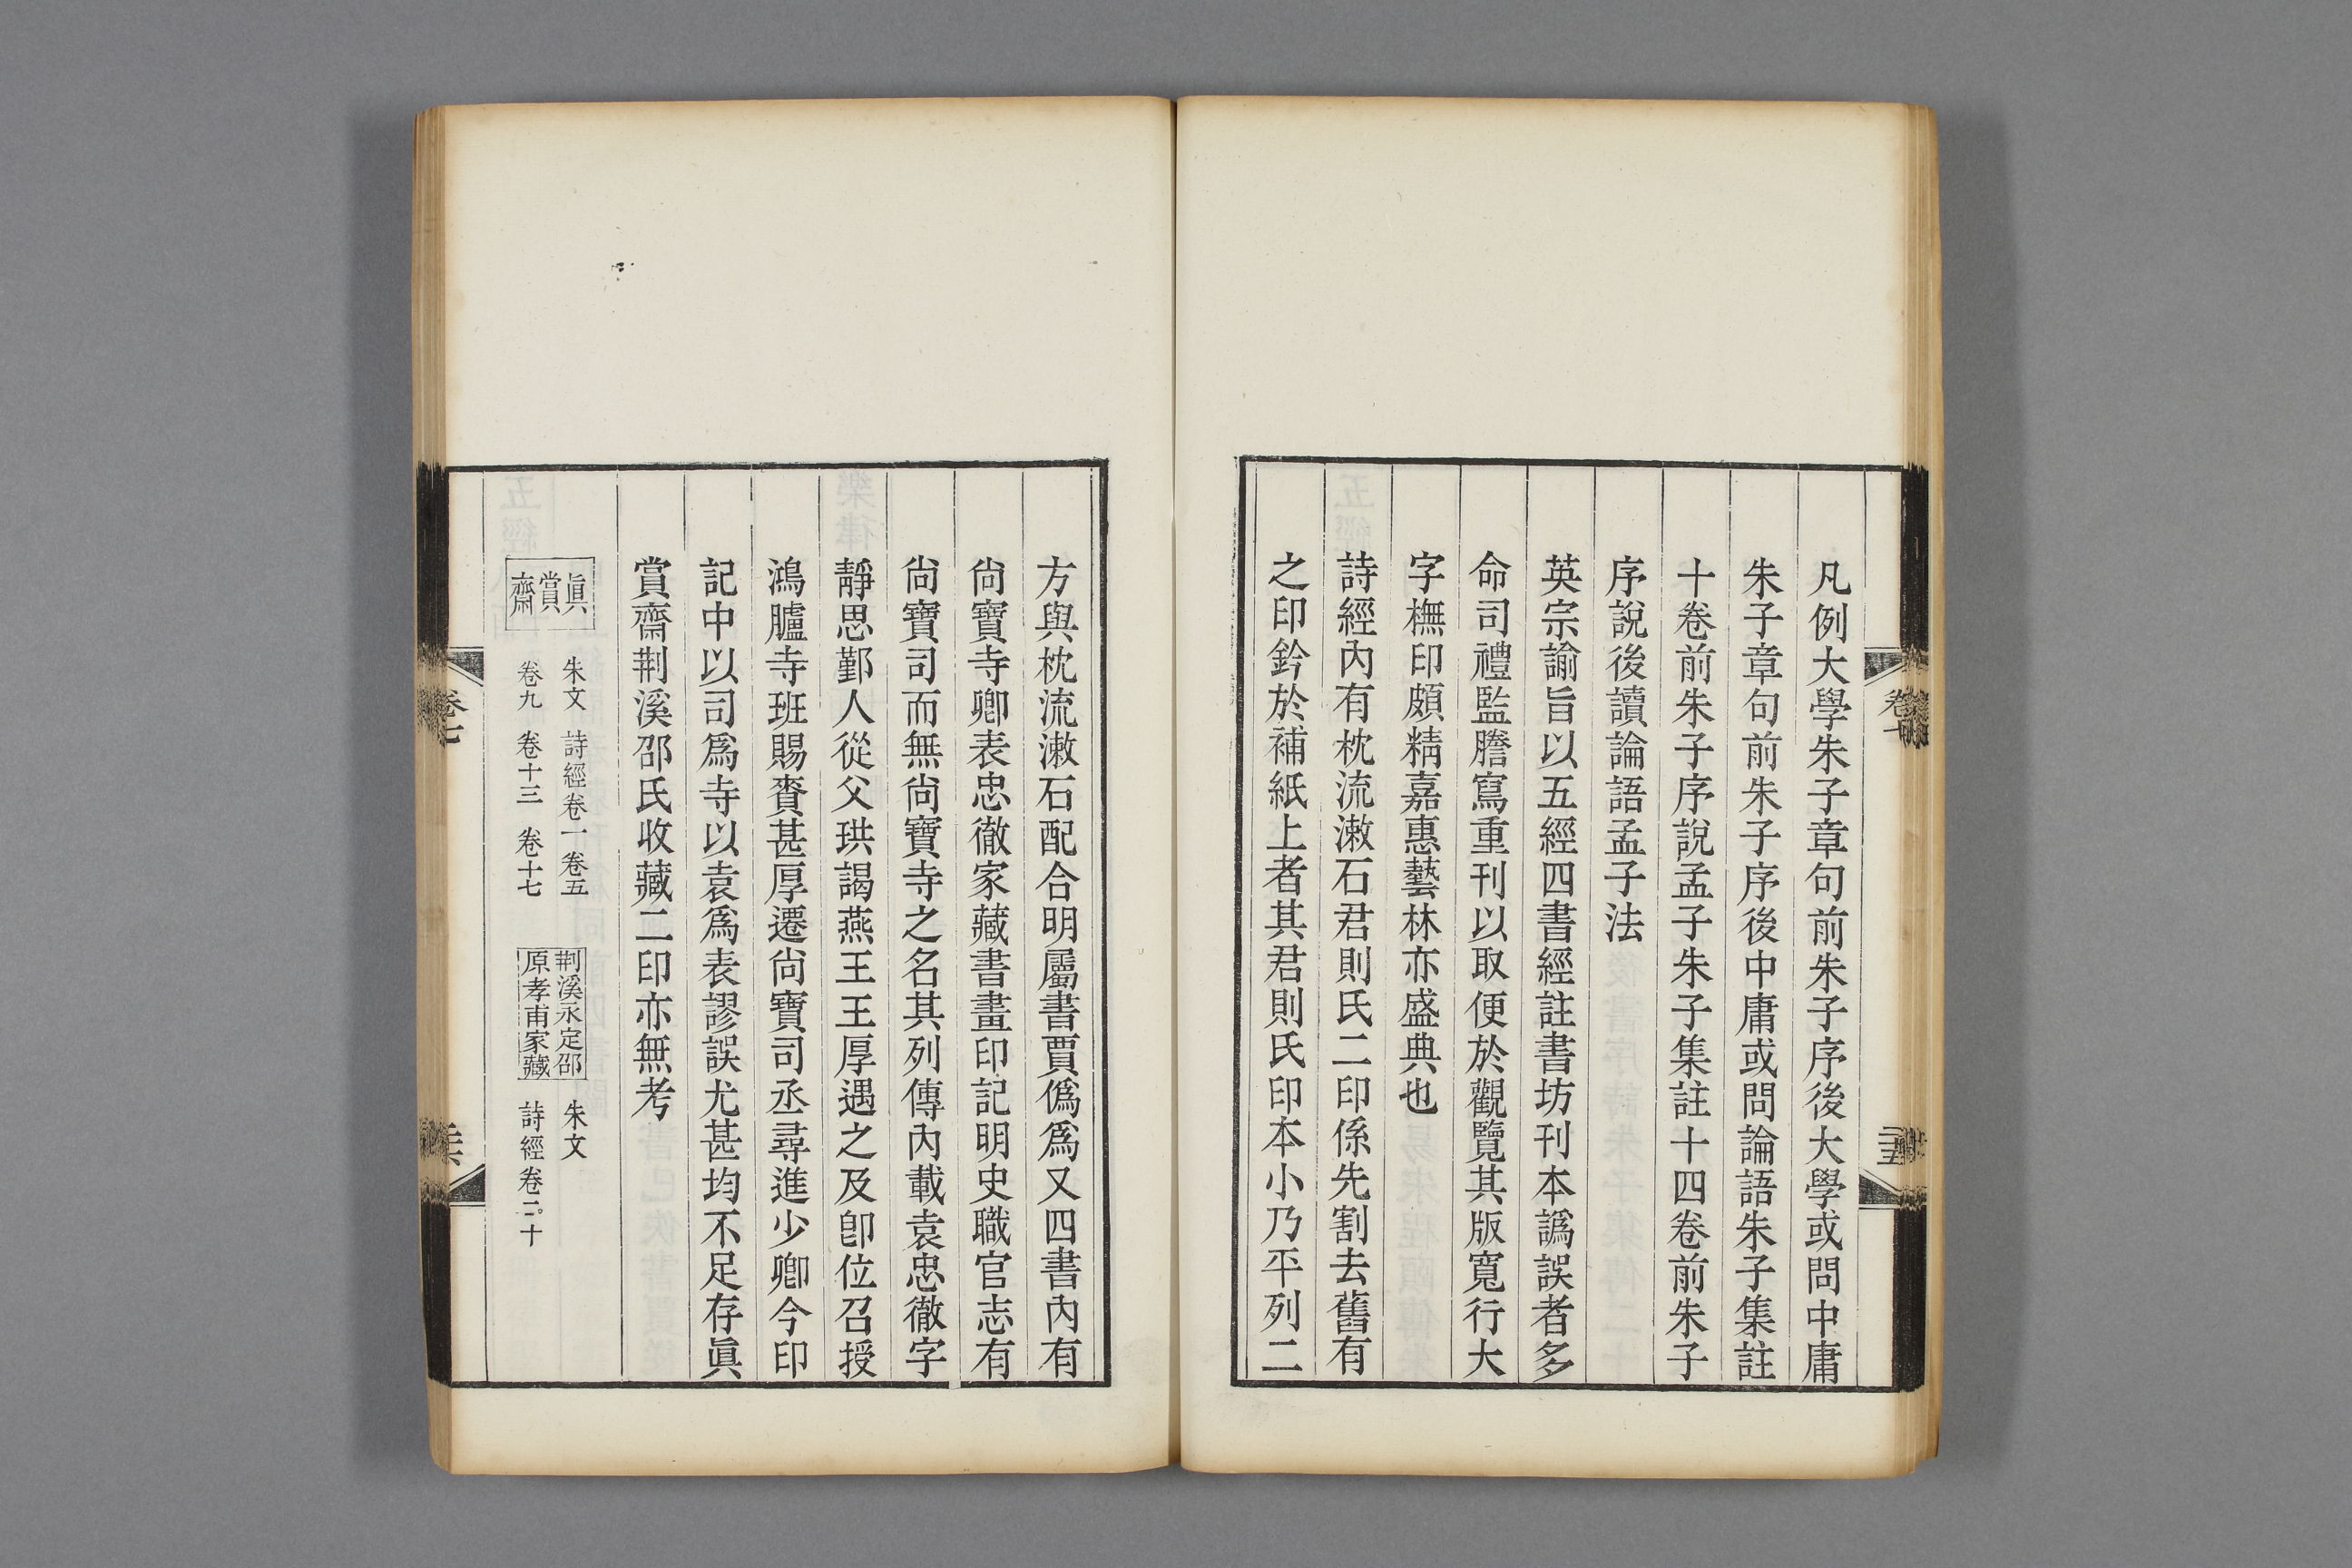 凡例大學朱子章句前朱子序後大學或問中庸
朱子章句前朱子序後中庸或問論語朱子集註
十卷前朱子序說孟子朱子集註十四卷前朱子
序說後讀論語孟子法
英宗諭旨以五經四書經註書坊刊本譌誤者多
命司禮監謄寫重刊以取便於觀覽其版寬行大
字橅印頗精嘉惠藝林亦盛典也
詩經內有枕流漱石君則氏二印係先割去舊有
之印鈐於補紙上者其君則氏印本小乃平列二
方與枕流漱石配合明屬書賈僞爲又四書內有
尙寶寺卿表忠徹家藏書畫印記明史職官志有
尙寶司而無尙寶寺之名其列傳內載袁忠徹字
靜思鄞人從父珙謁燕王王厚遇之及卽位召授
鴻臚寺班賜賚甚厚遷尙寶司丞尋進少卿今印
記中以司爲寺以袁爲表謬誤尤甚均不足存眞
賞齋荆溪邵氏收藏二印亦無考
眞
賞
齋
朱文 詩經卷一 卷五
卷九 卷十三 卷十七
荆溪永定邵
原孝甫家藏
朱文
詩經卷二 十
卷七
卷七